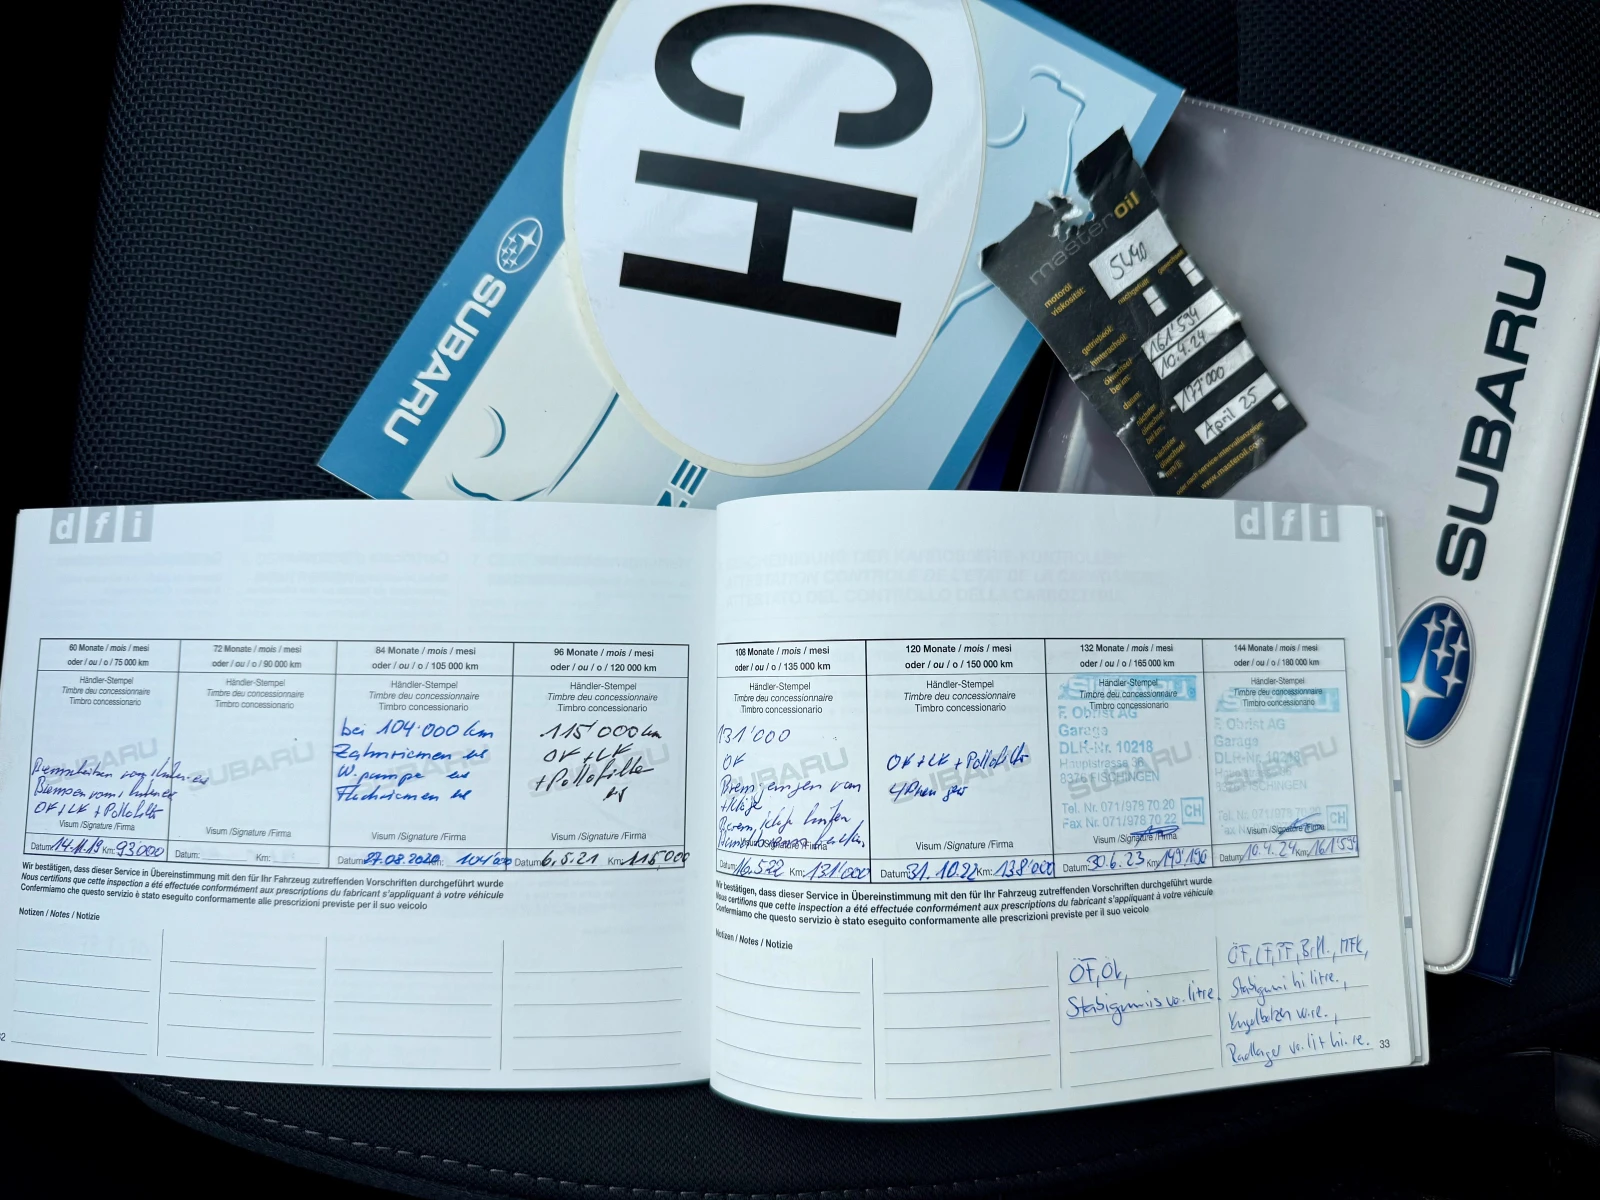 CH
SUBARU
SUBARU
masteroil
motoröl
viskosität:
5W40
nachgefüllt
gewechselt
getriebeöl:
hinterachsöl:
ölwechsel
bei km:
161'594
datum:
10.4.24
nächster
ölwechsel
bei km:
177'000
nächster
ölwechsel
April 25
oder nach service-intervallanzeige
www.masteroil.com
dfi
60 Monate / mois / mesi
oder / ou / o / 75 000 km
Händler-Stempel
Timbre deu concessionnaire
Timbro concessionario
SUBARU
Bremsscheiben vorn+hinten es
Bremsen vorn+hinten
ÖF+LF+Pollefilter
Visum /Signature /Firma
Datum: 14.11.19 Km: 93000
72 Monate / mois / mesi
oder / ou / o / 90 000 km
Händler-Stempel
Timbre deu concessionnaire
Timbro concessionario
SUBARU
Visum /Signature /Firma
Datum: Km:
84 Monate / mois / mesi
oder / ou / o / 105 000 km
Händler-Stempel
Timbre deu concessionnaire
Timbro concessionario
bei 104'000 km
Zahnriemen es
W.pumpe es
Flachriemen es
SUBARU
Visum /Signature /Firma
Datum: 27.08.2020 Km: 104'000
96 Monate / mois / mesi
oder / ou / o / 120 000 km
Händler-Stempel
Timbre deu concessionnaire
Timbro concessionario
115'000 km
ÖF+LF
+Pollefilter
es
SUBARU
Visum /Signature /Firma
Datum: 6.5.21 Km: 115'000
Wir bestätigen, dass dieser Service in Übereinstimmung mit den für Ihr Fahrzeug zutreffenden Vorschriften durchgeführt wurde
Nous certifions que cette inspection a été effectuée conformément aux prescriptions du fabricant s'appliquant à votre véhicule
Confermiamo che questo servizio è stato eseguito conformamente alle prescrizioni previste per il suo veicolo
Notizen / Notes / Notizie
dfi
108 Monate / mois / mesi
oder / ou / o / 135 000 km
Händler-Stempel
Timbre deu concessionnaire
Timbro concessionario
131'000
ÖF
SUBARU
Visum /Signature /Firma
Datum: 16.5.22 Km: 131'000
120 Monate / mois / mesi
oder / ou / o / 150 000 km
Händler-Stempel
Timbre deu concessionnaire
Timbro concessionario
ÖF+LF+Pollefilter
SUBARU
Visum /Signature /Firma
Datum: 31.10.22 Km: 138'000
132 Monate / mois / mesi
oder / ou / o / 165 000 km
Händler-Stempel
Timbre deu concessionnaire
Timbro concessionario
SUBARU
F. Obrist AG
Garage
DLH-Nr. 10218
Hauptstrasse 36
8376 FISCHINGEN
Tel. Nr. 071/978 70 20
Fax Nr. 071/978 70 22
CH
Visum /Signature /Firma
Datum: 30.6.23 Km: 149'196
144 Monate / mois / mesi
oder / ou / o / 180 000 km
Händler-Stempel
Timbre deu concessionnaire
Timbro concessionario
SUBARU
F. Obrist AG
Garage
DLH-Nr. 10218
FISCHINGEN
Tel. Nr. 071/978 70 20
CH
Visum /Signature /Firma
Datum: 10.4.24 Km: 161'594
Wir bestätigen, dass dieser Service in Übereinstimmung mit den für Ihr Fahrzeug zutreffenden Vorschriften durchgeführt wurde
Nous certifions que cette inspection a été effectuée conformément aux prescriptions du fabricant s'appliquant à votre véhicule
Confermiamo che questo servizio è stato eseguito conformamente alle prescrizioni previste per il suo veicolo
Notizen / Notes / Notizie
ÖF,ÖL,
Stabigummis vo. li+re.
ÖF, LF, PF, Br.fl., MFK,
Stabigummi hi li+re.,
Kugelbolzen vo re.,
Radlager vo. li+hi. re.
33